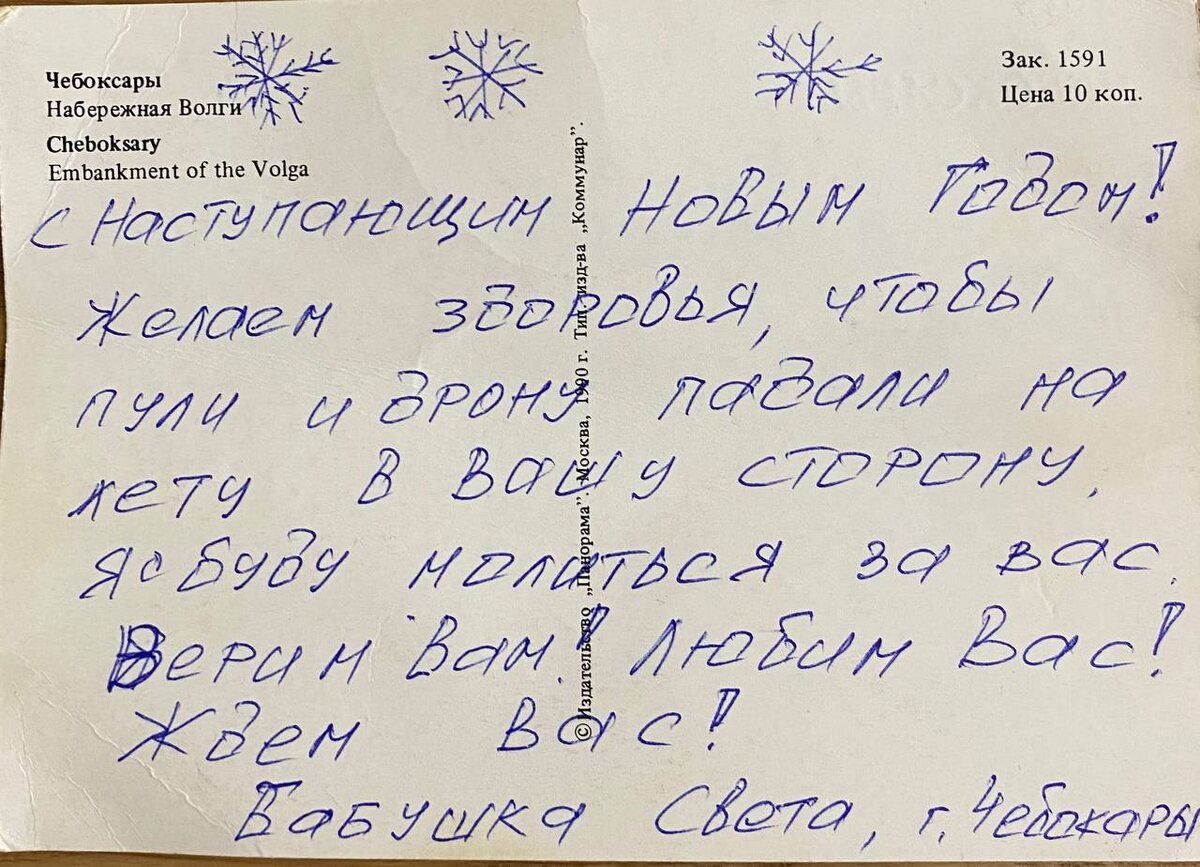 Чебоксары
Набережная Волги
Cheboksary
Embankment of the Volga
Зак. 1591
Цена 10 коп.
с Наступающим Новым Годом!
Желаем здоровья, чтобы
пули и дрону падали на
лету в вашу сторону,
я буду молиться за вас.
Верим Вам! Любим Вас!
Ждем Вас!
Бабушка Света, г. Чебокары
© Издательство „Панорама”. Москва, 1990 г. Тип. изд-ва „Коммунар”.